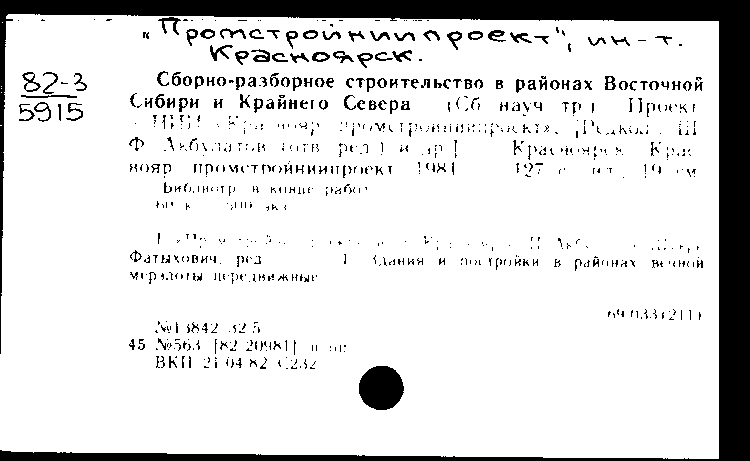 "Промстройниипроект", ин-т.
Красноярск.
82-3
5915
Сборно-разборное строительство в районах Восточной
Сибири и Крайнего Севера (Сб науч тр) Проект
промстройниипроект», [Редкол. Ш
Ф Акбулатов (отв ред) и др] Красноярск Крас
нояр промстройниипроект 1981 127 с ил, 19 см
Библиогр в конце работ
Фатыхович, ред I Здания и постройки в районах вечной
мерзлоты передвижные
69 033(211)
№13842 32 5
45 №563 [82-20981]
ВКП 21 04 82 С232